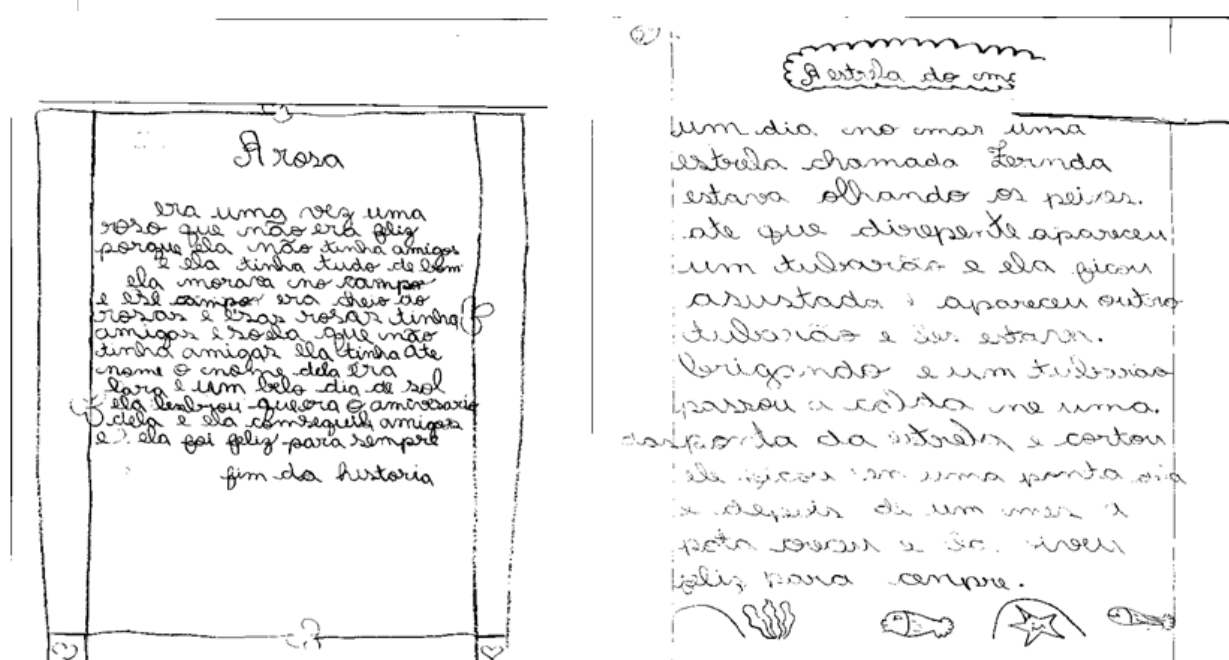 A rosa
era uma vez uma
roso que não era feliz
porque ela não tinha amigos
e ela tinha tudo de bom
ela morava no campo
e ese campo era cheio do
rosas e esas rosas tinha
amigas e soela que não
tinha amigas ela tinha ate
nome o nome dela era
lara e um belo dia de sol
ela lenbrou que era o aniversario
dela e ela conseguiu amigas
e ela foi feliz para sempre
fim da historia
A estrela do
um dia no mar uma
estrela chamada Fernda
estava olhando os peixes.
ate que direpente apareceu
um tubarão e ela ficou
asustada apareceu outro
tubarão e
brigando e um tubarão
passou a na uma.
ponta da estrela e cortou
ela ficou sem uma ponta
e depois de um mes a
e
feliz para cenpre.